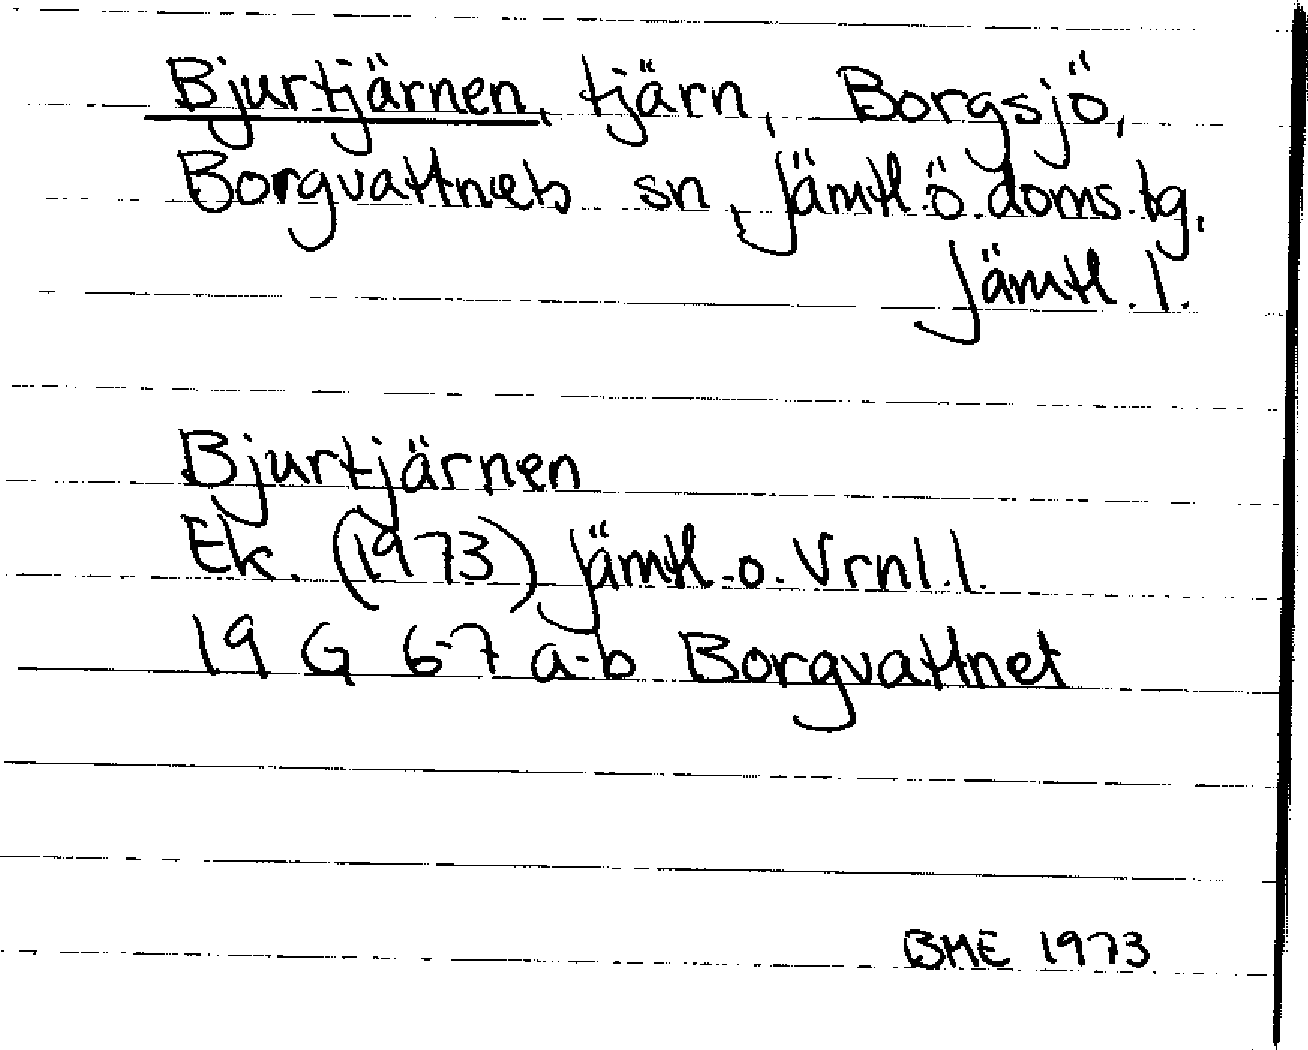 Bjurtjärnen, tjärn, Borgsjö,
Borgvattnets sn, Jämtl. ö. doms. tg.
Jämtl. l.
Bjurtjärnen
Ek. (1973) Jämtl. o. Vrnl. l.
19 G 6-7 a-b Borgvattnet
BME 1973